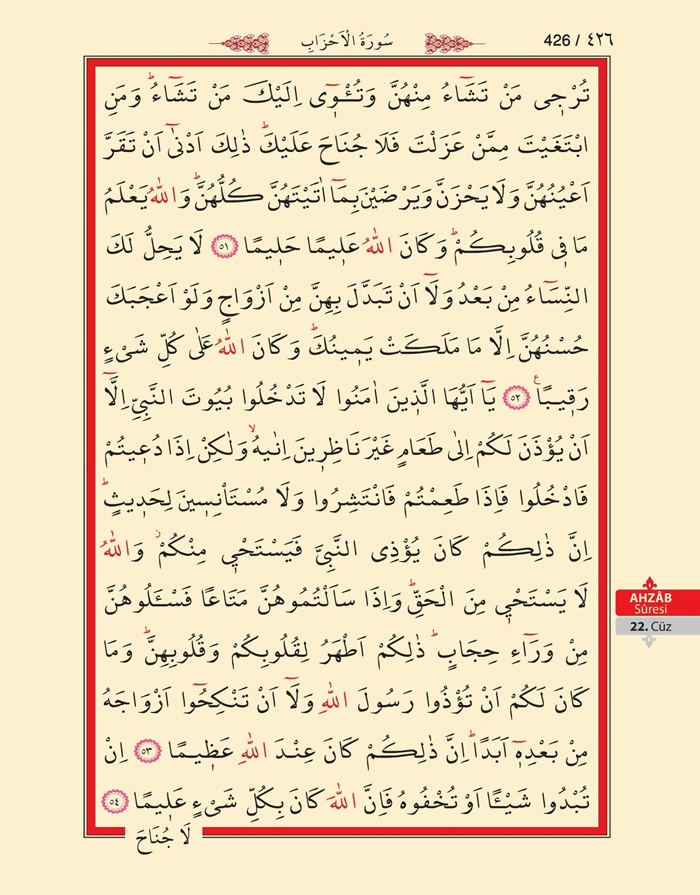 سُورَةُ الْاَحْزَابِ
426 / ٤٢٦
تُرْجٖي مَنْ تَشَٓاءُ مِنْهُنَّ وَتُـْٔوٖٓي اِلَيْكَ مَنْ تَشَٓاءُۜ وَمَنِ
ابْتَغَيْتَ مِمَّنْ عَزَلْتَ فَلَا جُنَاحَ عَلَيْكَۜ ذٰلِكَ اَدْنٰٓى اَنْ تَقَرَّ
اَعْيُنُهُنَّ وَلَا يَحْزَنَّ وَيَرْضَيْنَ بِمَٓا اٰتَيْتَهُنَّ كُلُّهُنَّۜ وَاللّٰهُ يَعْلَمُ
مَا فٖي قُلُوبِكُمْۜ وَكَانَ اللّٰهُ عَلٖيمًا حَلٖيمًا ٥١ لَا يَحِلُّ لَكَ
النِّسَٓاءُ مِنْ بَعْدُ وَلَٓا اَنْ تَبَدَّلَ بِهِنَّ مِنْ اَزْوَاجٍ وَلَوْ اَعْجَبَكَ
حُسْنُهُنَّ اِلَّا مَا مَلَكَتْ يَمٖينُكَۜ وَكَانَ اللّٰهُ عَلٰى كُلِّ شَيْءٍ
رَقٖيبًاࣖ ٥٢ يَٓا اَيُّهَا الَّذٖينَ اٰمَنُوا لَا تَدْخُلُوا بُيُوتَ النَّبِيِّ اِلَّٓا
اَنْ يُؤْذَنَ لَكُمْ اِلٰى طَعَامٍ غَيْرَ نَاظِرٖينَ اِنٰيهُۙ وَلٰكِنْ اِذَا دُعٖيتُمْ
فَادْخُلُوا فَاِذَا طَعِمْتُمْ فَانْتَشِرُوا وَلَا مُسْتَأْنِسٖينَ لِحَدٖيثٍۜ
اِنَّ ذٰلِكُمْ كَانَ يُؤْذِي النَّبِيَّ فَيَسْتَحْيٖ مِنْكُمْۘ وَاللّٰهُ
لَا يَسْتَحْيٖ مِنَ الْحَقِّۜ وَاِذَا سَاَلْتُمُوهُنَّ مَتَاعًا فَسْـَٔلُوهُنَّ
مِنْ وَرَٓاءِ حِجَابٍۜ ذٰلِكُمْ اَطْهَرُ لِقُلُوبِكُمْ وَقُلُوبِهِنَّۜ وَمَا
كَانَ لَكُمْ اَنْ تُؤْذُوا رَسُولَ اللّٰهِ وَلَٓا اَنْ تَنْكِحُٓوا اَزْوَاجَهُ
مِنْ بَعْدِهٖٓ اَبَدًاۜ اِنَّ ذٰلِكُمْ كَانَ عِنْدَ اللّٰهِ عَظٖيمًا ٥٣ اِنْ
تُبْدُوا شَيْـًٔا اَوْ تُخْفُوهُ فَاِنَّ اللّٰهَ كَانَ بِكُلِّ شَيْءٍ عَلٖيمًا ٥٤
لَا جُنَاحَ
AHZÂB
Sûresi
22. Cüz